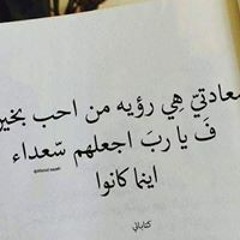 سعادتيّ هِي رؤيه من احب بخير
فَ يا ربَ اجعلهم سّعداء
اينما كانوا
كتاباتي